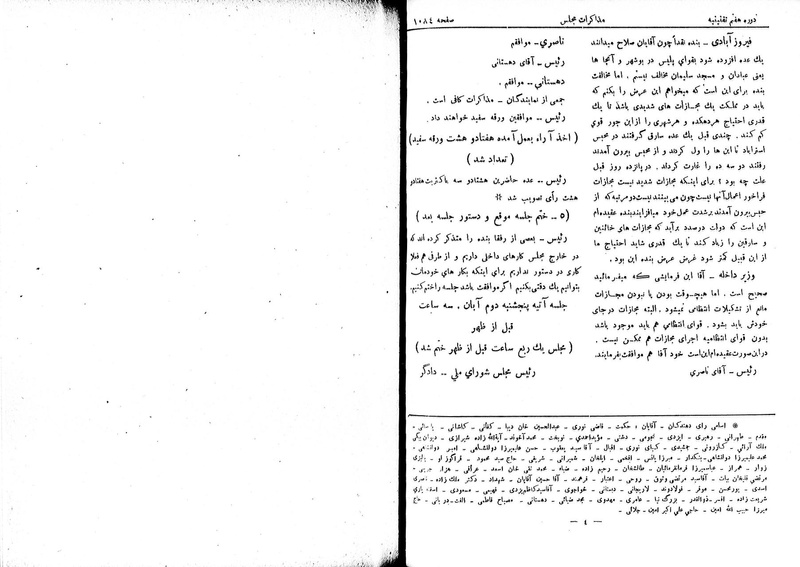 دوره هفتم تقنینیه
مذاکرات مجلس
صفحه ۱۰۸٤
فیروز آبادی ـ بنده نقداً چون آقایان صلاح میدانند
یك عده افزوده شود بقوای پلیس در بوشهر و آنجا ها
یعنی عبادان و مسجد سلیمان مخالف نیستم . اما مخالفت
بنده برای این است که میخواهم این عرض را بکنم که
باید در مملکت یك مجازات های شدیدی باشد تا یك
قدری احتیاج هر دهکده و هر شهری را از این جور قوی
کم کنند . چندی قبل یك عده سارق گرفتند در محبس
استرآباد تا این ها را ول کردند و از محبس بیرون آمدند
رفتند دو سه ده را غارت کردند . در پانزده روز قبل
علت چه بود ؟ برای اینکه مجازات شدید نیست مجازات
فراخور اعمال آنها نیست چون می بینند نیست دو مرتبه که از
حبس بیرون آمدند بر شدت عمل خود میافزایند بنده عقیده ام
این است که دولت در صدد برآید که مجازات های خائنین
و سارقین را زیاد کند تا یك قدری شاید احتیاج ما
از این قبیل کمتر شود غرض عرض بنده این بود .
وزیر داخله ـ آقا این فرمایشی که میفرمائید
صحیح است . اما هیچوقت بودن یا نبودن مجازات
مانع از تشکیلات انتظامی نمیشود . البته مجازات در جای
خودش باید بشود . قوای انتظامی هم باید موجود باشد
بدون قوای انتظامیه اجرای مجازات هم ممکن نیست .
در این صورت عقیده ام این است خود آقا هم موافقت بفرمایند.
رئیس ـ آقای ناصری
ناصری ـ موافقم
رئیس ـ آقای دهستانی
دهستانی ـ موافقم .
جمعی از نمایندگان ـ مذاکرات کافی است .
رئیس ـ موافقین ورقه سفید خواهند داد .
( اخذ آراء بعمل آمده هفتاد و هشت ورقه سفید )
( تعداد شد )
رئیس ـ عده حاضرین هشتاد و سه باکثریت هفتاد و
هشت رأی تصویب شد *
( ٥ ـ ختم جلسه موقع و دستور جلسه بعد )
رئیس ـ بعضی از رفقا بنده را متذکر کرده اند که
در خارج مجلس کارهای داخلی داریم و از طرفی هم فعلا
کاری در دستور نداریم برای اینکه بکار های خودمان
بتوانیم یك دقتی بکنیم اگر موافقت باشد جلسه را ختم کنیم.
جلسه آتیه پنجشنبه دوم آبان . سه ساعت
قبل از ظهر
( مجلس یك ربع ساعت قبل از ظهر ختم شد )
رئیس مجلس شورای ملی ـ دادگر
* اسامی رأی دهندگان ـ آقایان : حکمت ـ قاضی نوری ـ عبدالحسین خان دیبا ـ کفائی ـ کاشانی ـ
مقدم ـ طهرانی ـ رهبری ـ ایزدی ـ نجومی ـ دشتی ـ مؤید احمدی ـ نوبخت ـ محمد آخوند ـ آیة الله زاده شیرازی ـ دیوان بیگی
ملك آرائی ـ کازرونی ـ جمشیدی ـ کیای نوری ـ اقبال ـ آقا سید یعقوب ـ حسن علیمیرزا دولتشاهی ـ امیر دولتشاهی ـ
محمد علیمیرزا دولتشاهی ـ بیات ـ میرزا یانس ـ افخمی ـ ایلخان ـ شیروانی ـ شریفی ـ حاج سید محمود ـ قراگوزلو ـ
زوار ـ همراز ـ عباسمیرزا فرمانفرمائیان ـ طالشخان ـ رحیم زاده ـ ضیاء ـ محمد تقی خان اسعد ـ عراقی ـ
مرتضی قلیخان بیات ـ آقا سید مرتضی وثوق ـ روحی ـ اعتبار ـ فرهمند ـ آقا حسین آقایان ـ شهداد ـ دکتر ملك زاده ـ ناصری
اسدی ـ پور محسن ـ موقر ـ فولادوند ـ لاریجانی ـ دبستانی ـ خواجوی ـ آقا سید کاظم یزدی ـ فهیمی ـ مسعودی ـ
شریعت زاده ـ افسر ـ ذوالقدر ـ بزرگ نیا ـ عامری ـ مهدوی ـ محمد ضیائی ـ دهستانی ـ مصباح فاطمی ـ الفت ـ حاج
میرزا حبیب الله امین ـ حاجی علی اکبر امین ـ جلالی .
ـ ٤ ـ